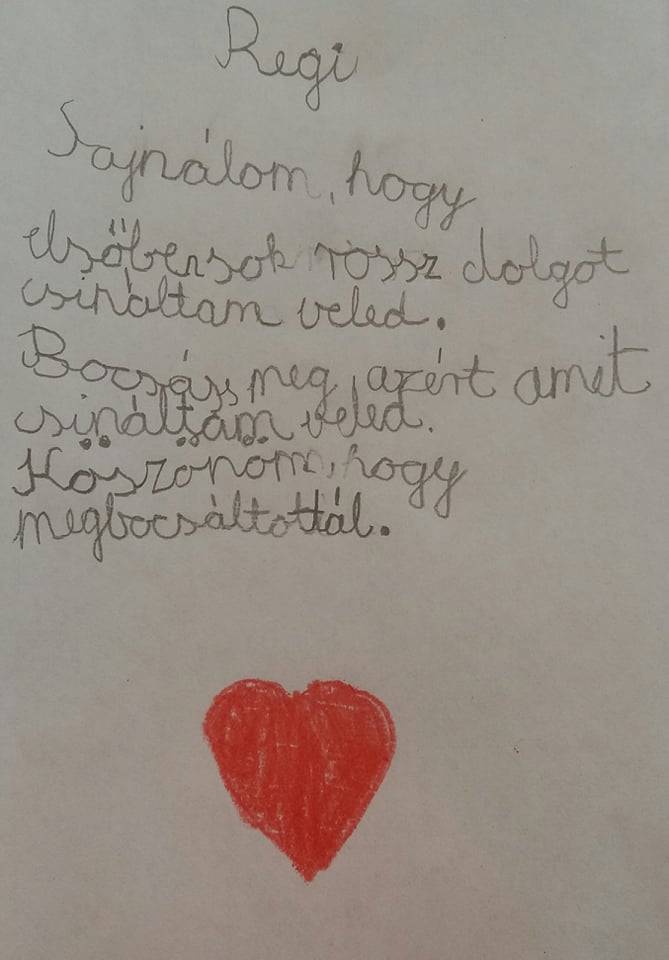 Regi
Sajnálom, hogy
elsőbensok rossz dolgot
csináltam veled.
Bocsáss meg, azért amit
csináltam veled.
Köszönöm, hogy
megbocsáltottál.